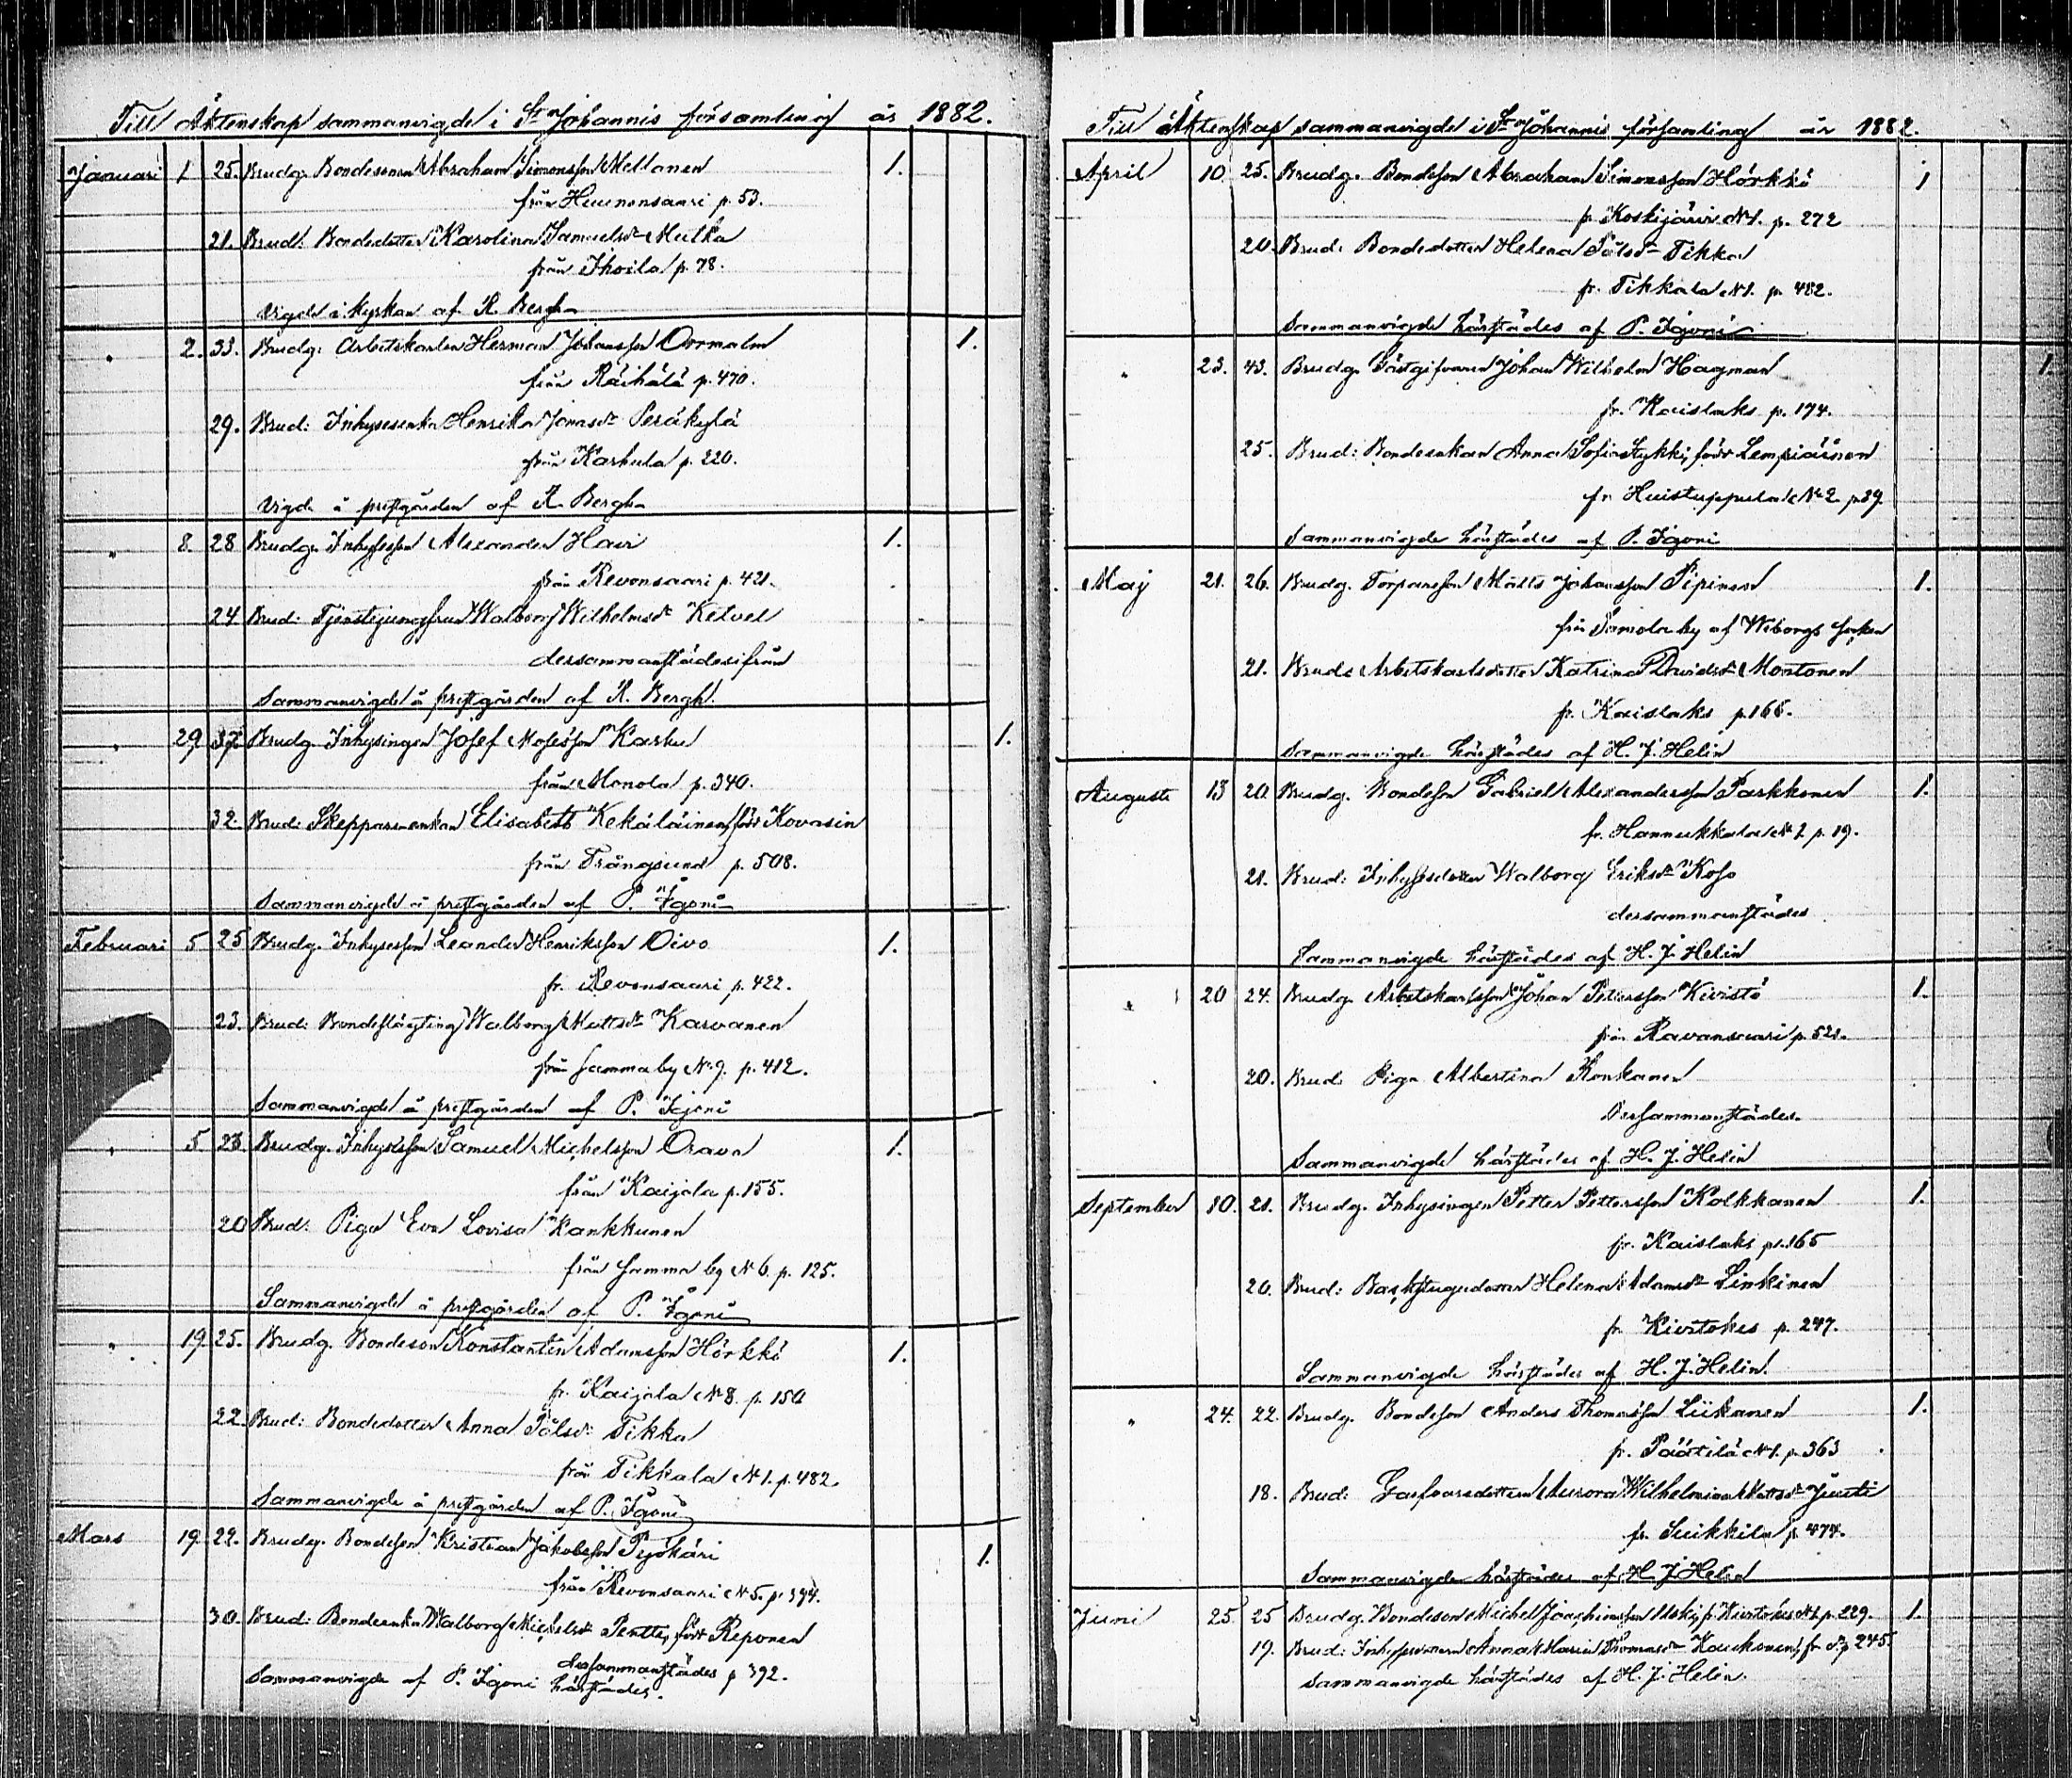 Till Äktenskap sammanvigde i St Johannis församling år 1882.
Januari 1 25. Brudg. Bondesonen Abraham Simonsson Mellanen 1.
från Huunonsaari p. 53.
21. Brud: Bondedotter Karolina Samuelsdr Mulka
från Ihoila p. 78.
Vigde i kyrkan af K. Bergh
" 2. 33. Brudg: Arbetskarlen Herman Johansson Oormalm 1.
från Räihälä p. 470.
29. Brud: Inhysesenka Henrika Jonasdr Peräkylä
från Karhula p. 220.
Vigde å prestgården af K. Bergh
" 8. 28 Brudg. Inhyseson Alexander Havi 1.
från Revonsaari p. 421.
24 Brud: Tjenstejungfrun Walborg Wilhelmsdr Kelvel
dersammanstädesifrån
Sammanvigde å prestgården af K. Bergh.
" 29 37. Brudg. Inhysingen Josef Mosesson Karhu 1.
från Monola p. 340.
32. Brud: Skepparenkan Elisabeth Kekäläinen, född Kovasin
från Trångsund p. 508.
Sammanvigde å prestgården af P. Igoni
Februari 5 25 Brudg. Inhyseson Leander Henriksson Oivo 1.
fr. Revonsaari p. 422.
23. Brud: Bondeflägting Walborg Mattsdr Karvanen
från samma by № 9. p. 412.
Sammanvigde å prestgården af P. Igoni
" 5 23. Brudg. Inhyseson Samuel Michelsson Orava 1.
från Kaijala p. 155.
20 Brud: Piga Eva Lovisa Kankkunen
från samma by № 6. p. 125.
Sammanvigde å prestgården af P. Igoni
" 19. 25. Brudg. Bondeson Konstantin Adamsson Hörkkö 1.
fr. Kaijala № 8. p. 150
22. Brud: Bondedotter Anna Pålsdr Tikka
från Tikkala № 1. p. 482.
Sammanvigde å prestgården af P. Igoni
Mars 19. 22. Brudg. Bondeson Kristian Jakobsson Pyökäri 1.
från Revonsaari № 5. p. 394.
30. Brud: Bondeenka Walborg Michelsdr Pentti, född Reponen
dersammanstädes p. 392.
Sammanvigde af P. Igoni härstädes.
Till Äktenskap sammanvigde i St Johannis församling år 1882.
April 10. 25. Brudg. Bondeson Abraham Simonsson Hörkkö 1
fr. Koskijärvi № 1. p. 272
20. Brud: Bondedotter Helena Pålsdr Tikka
fr. Tikkala № 1. p. 482.
Sammanvigde härstädes af P. Igoni
" 23. 43. Brudg. Gästgifvaren Johan Wilhelm Hagman 1.
fr. Kaislaks p. 174.
25. Brud: Bondeenkan Anna Sofia Tykki, född Lempiäinen
fr. Huistuppula № 2. p. 39.
Sammanvigde härstädes af P. Igoni
Maj 21. 26. Brudg. Torpareson Matts Johansson Pipinen 1.
från Samola by af Wiborgs socken
21. Brud: Arbetskarlsdotter Katrina Davidsdr Montonen
fr. Kaislaks p. 166.
Sammanvigde härstädes af H. J. Helin
Augusti 13 20. Brudg. Bondeson Gabriel Alexandersson Parkkonen 1.
fr. Hannukkala № 2 p. 19.
21. Brud: Inhysesdotter Walborg Eriksdr Koso
dersammanstädes
Sammanvigde härstädes af H. J. Helin
" 20 24. Brudg. Arbetskarlsson Johan Petersson Kivistö 1.
från Ravansaari p. 521.
20. Brud: Piga Albertina Konkanen
Dersammanstädes.
Sammanvigde härstädes af H. J. Helin
September 10. 21. Brudg. Inhysingen Petter Pettersson Kolkkanen 1.
fr. Kaislaks p. 165
20. Brud: Backstugudotter Helena Adamsdr Linkinen
fr. Kirstokes p. 247.
Sammanvigde härstädes af H. J. Helin.
" 24. 22. Brudg. Bondeson Anders Thomasson Liikanen 1.
fr. Päätilä № 1. p. 363
18. Brud: Aurora Wilhelmina Mattsdr Juuti
fr. Suikkila p. 474.
Sammanvigde härstädes af H. J. Helin
Juni 25. 25 Brudg. Bondeson Michel Joachimsson fr. Kirstokes № 1. p. 229. 1.
19. Brud: Anna Maria Thomasdr Kaukonen, fr. p. 245.
Sammanvigde härstädes af H. J. Helin.